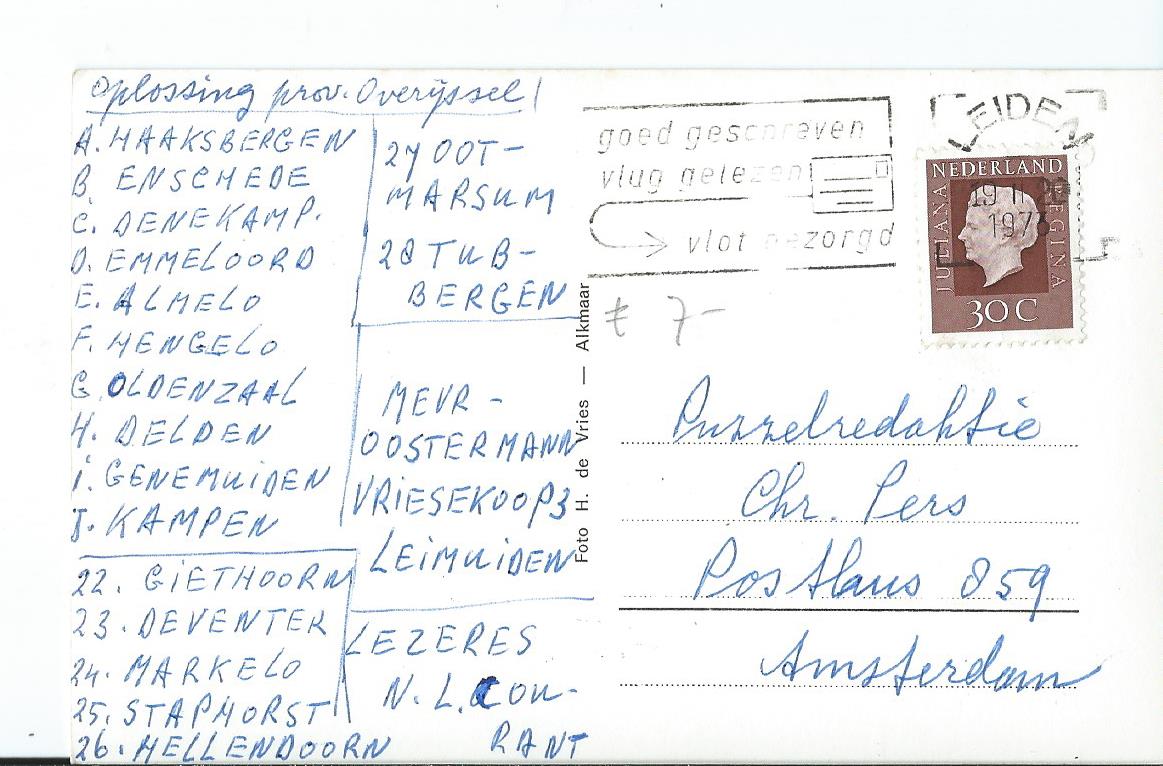 Oplossing prov. Overijssel!
A. HAAKSBERGEN
B ENSCHEDE
C. DENEKAMP.
D. EMMELOORD
E. ALMELO
F. HENGELO
G OLDENZAAL
H. DELDEN
i. GENEMUiDEN
J. KAMPEN
22. GiETHOORN
23. DEVENTER
24. MARKELO
25. STAPHORST
26. HELLENDOORN
27 OOT-
MARSUM
28 TUB-
BERGEN
MEVR-
OOSTERMANN
VRiESEKOOP3
LEiMUiDEN
LEZERES
N.L. COU-
RANT
Foto H. de Vries — Alkmaar
goed geschreven
vlug gelezen
vlot bezorgd
LEIDEN
19 II 20
1973
NEDERLAND
JULIANA REGINA
30 C
7-
Puzzelredaktie
Chr. Pers
Postbus 859
Amsterdam